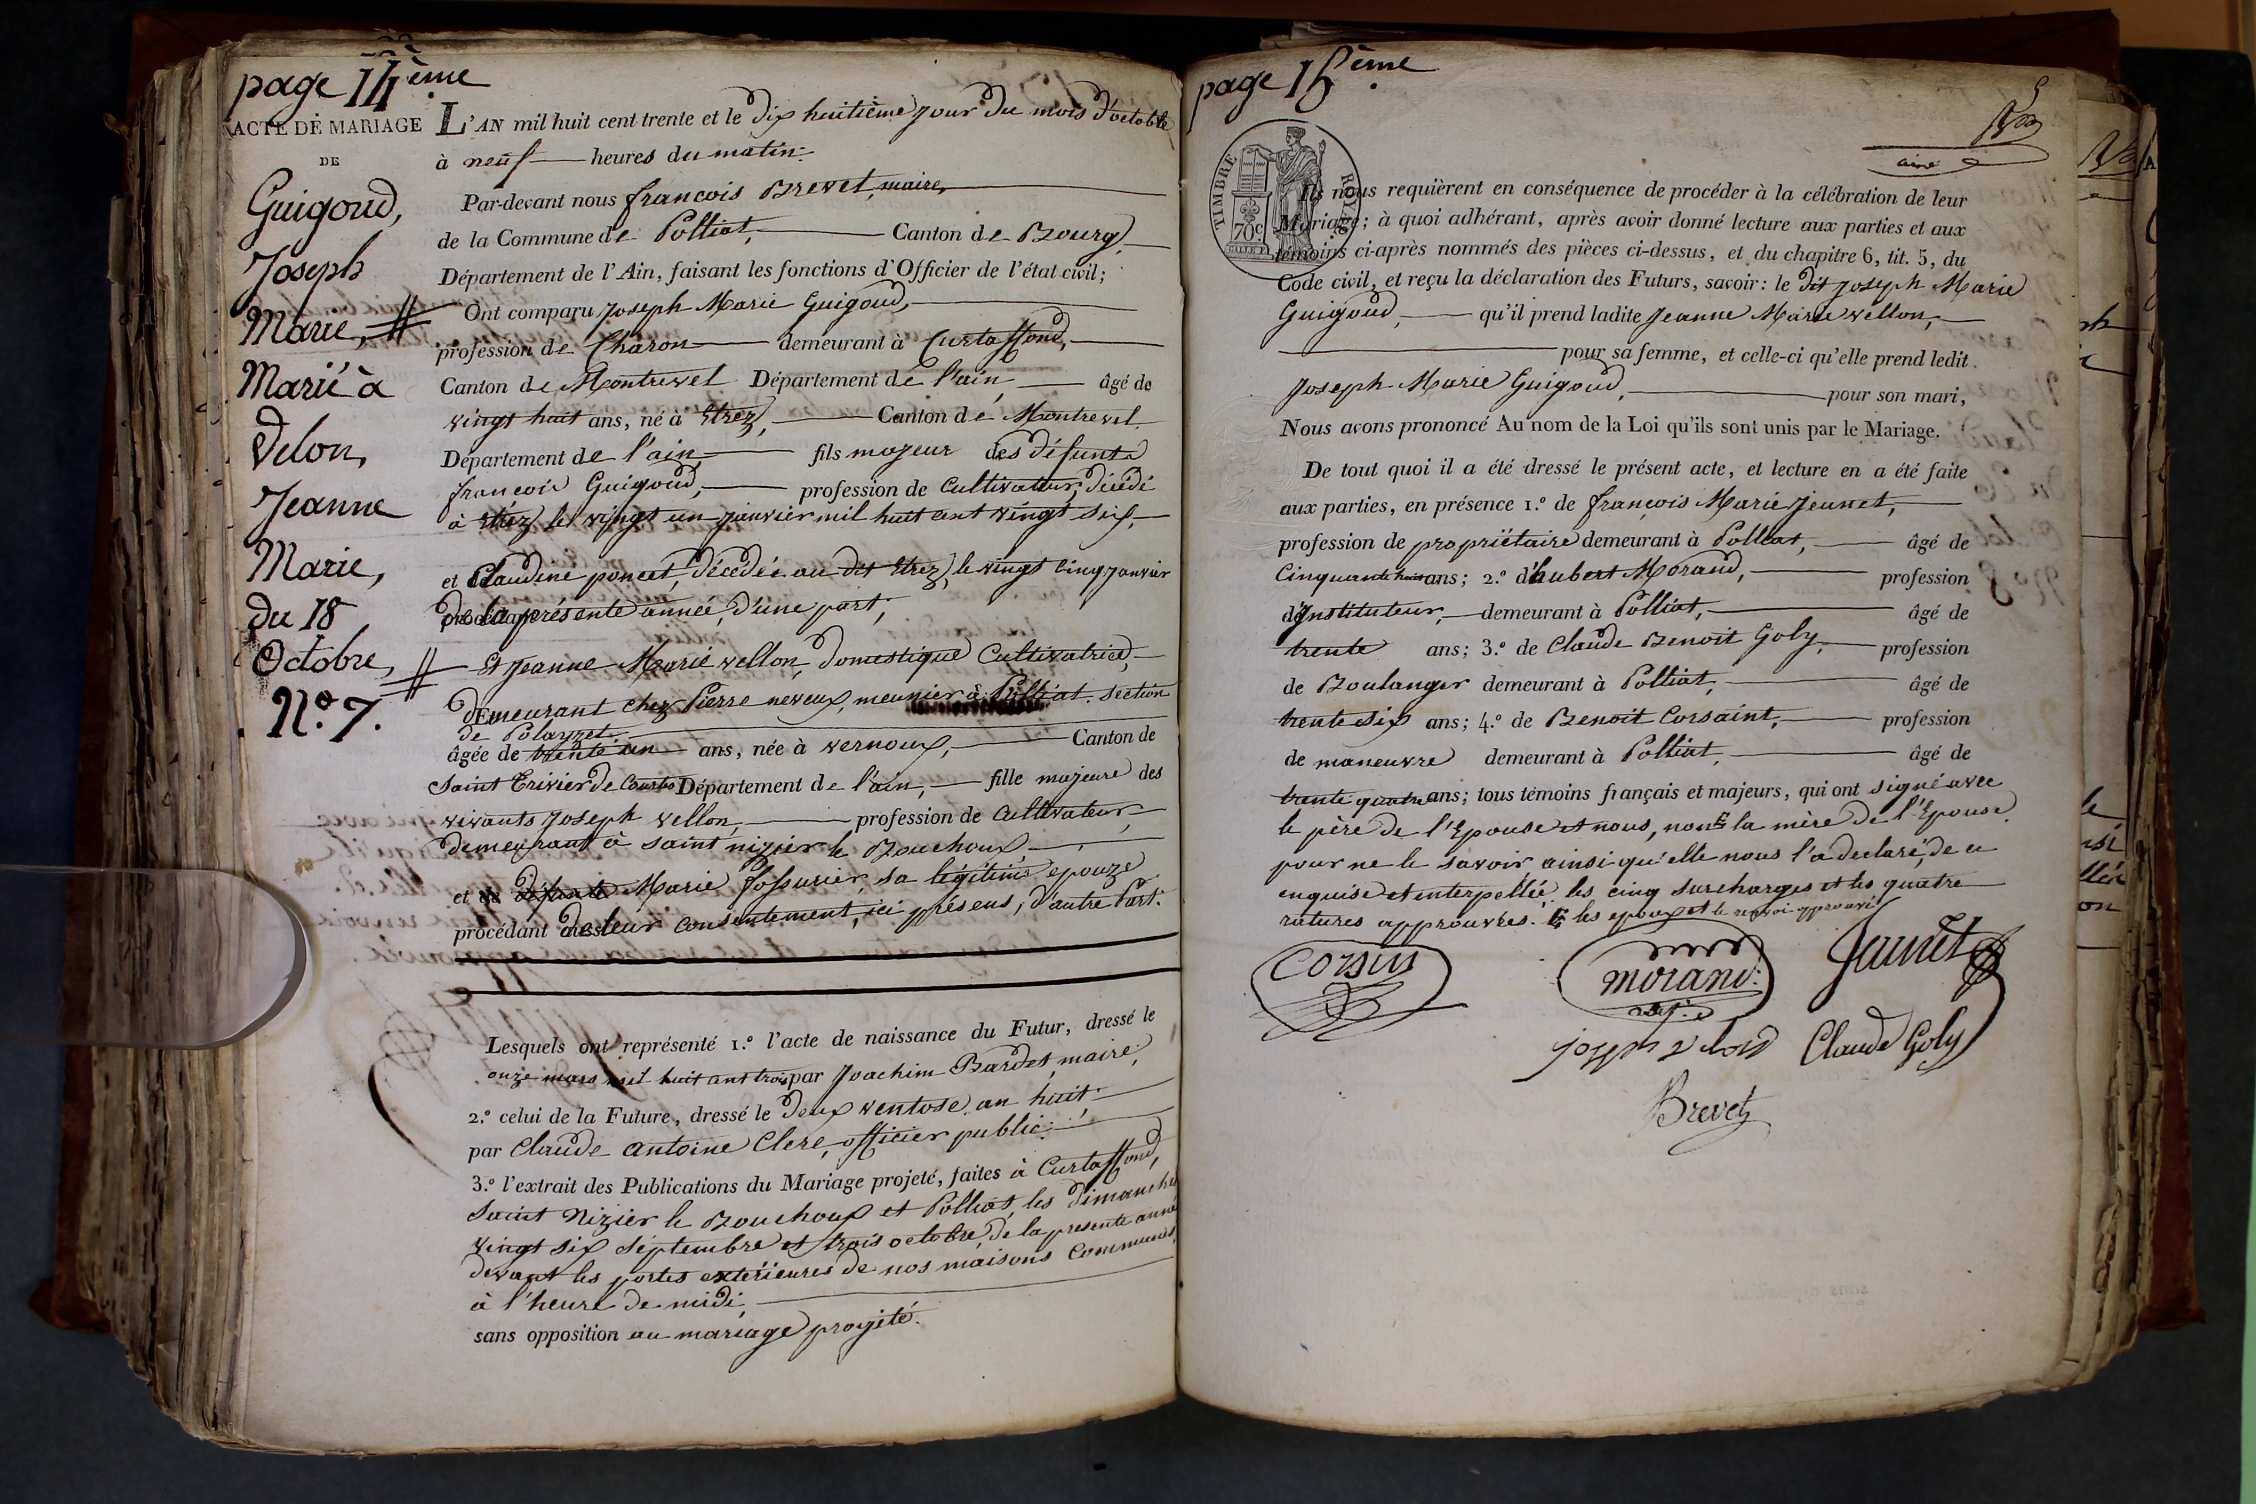 page 14ème
ACTE DE MARIAGE
DE
Guigoud,
Joseph
Marie,
Marié à
Velon,
Jeanne
Marie,
du 18
Octobre,
N.º 7.
L'AN mil huit cent trente et le dix huitième jour du mois d'octobre
à neuf heures du matin.
Par-devant nous françois Brevet, maire,
de la Commune de Polliat, Canton de Bourg,
Département de l'Ain, faisant les fonctions d'Officier de l'état civil;
Ont comparu Joseph Marie Guigoud,
profession de Charon demeurant à Curtaffond,
Canton de Montrevel Département de l'ain, âgé de
vingt huit ans, né à Etrez, Canton de Montrevel
Département de l'ain, fils majeur des défunts
françois Guigoud, profession de Cultivateur, décédé
à Etrez le vingt un janvier mil huit cent vingt six,
et Claudine poncet, décédée au dit Etrez, le vingt cinq janvier
de la présente année, d'une part;
Et Jeanne Marie vellon, domestique Cultivatrice,
demeurant chez Pierre neveux, meunier à Polliat. section
de Polayzet.
âgée de trente un ans, née à vernoux, Canton de
Saint Trivier de Courtes Département de l'ain, fille majeure des
vivants Joseph vellon, profession de Cultivateur,
demeurant à saint nizier le Bouchoux,
et de défunte Marie fossurier, sa légitime epouze
procédant de leur consentement, ici présens, d'autre Part.
Lesquels ont représenté 1.º l'acte de naissance du Futur, dressé le
onze mars mil huit cent trois par Joachim Bardet, maire,
2.º celui de la Future, dressé le deux ventose an huit,
par Claude antoine Clerc, officier public;
3.º l'extrait des Publications du Mariage projeté, faites à Curtaffond,
Saint Nizier le Bouchoux et Polliat, les dimanches
vingt six séptembre et trois octobre, de la presente année
devant les portes extérieures de nos maisons Communes,
à l'heure de midi,
sans opposition au mariage projeté.
page 15ème
TIMBRE ROYAL
70c
Ils nous requièrent en conséquence de procéder à la célébration de leur
Mariage; à quoi adhérant, après avoir donné lecture aux parties et aux
témoins ci-après nommés des pièces ci-dessus, et du chapitre 6, tit. 5, du
Code civil, et reçu la déclaration des Futurs, savoir: le dit Joseph Marie
Guigoud, qu'il prend ladite Jeanne Marie vellon,
pour sa femme, et celle-ci qu'elle prend ledit
Joseph Marie Guigoud, pour son mari,
Nous avons prononcé Au nom de la Loi qu'ils sont unis par le Mariage.
De tout quoi il a été dressé le présent acte, et lecture en a été faite
aux parties, en présence 1.º de françois Marie Jeunet,
profession de propriétaire demeurant à Polliat, âgé de
Cinquante huit ans; 2.º d'hubert Morand, profession
d'Instituteur, demeurant à Polliat, âgé de
trente ans; 3.º de Claude Benoit Goly, profession
de Boulanger demeurant à Polliat, âgé de
trente six ans; 4.º de Benoit Corsaint, profession
de maneuvre demeurant à Polliat, âgé de
trente quatre ans; tous témoins français et majeurs, qui ont signé avec
le père de l'Epouse et nous, non la mère de l'Epouse
pour ne le savoir ainsi qu'elle nous l'a declaré, de ce
enquise et interpellée, les cinq surcharges et les quatre
ratures approuvées. les epoux et le renvoi approuvé
Corsin
morand.
Jeunet
Joseph velon
Claude Goly
Brevet